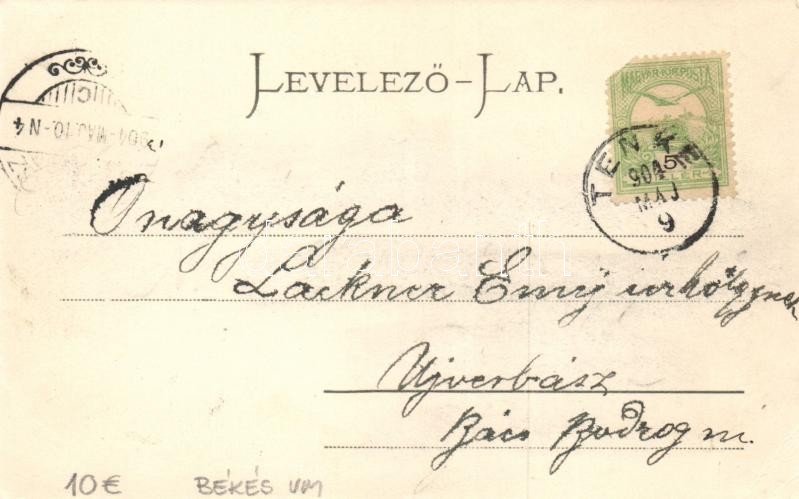 LEVELEZŐ-LAP.
MAGYAR KIR. POSTA
TENKE
904
MAJ
9
904 MAJ. 10. N4
Őnagysága
Lackner Emÿ úrhölgynek
Ujverbász
Bács Bodrog m.
10€ BÉKÉS VM